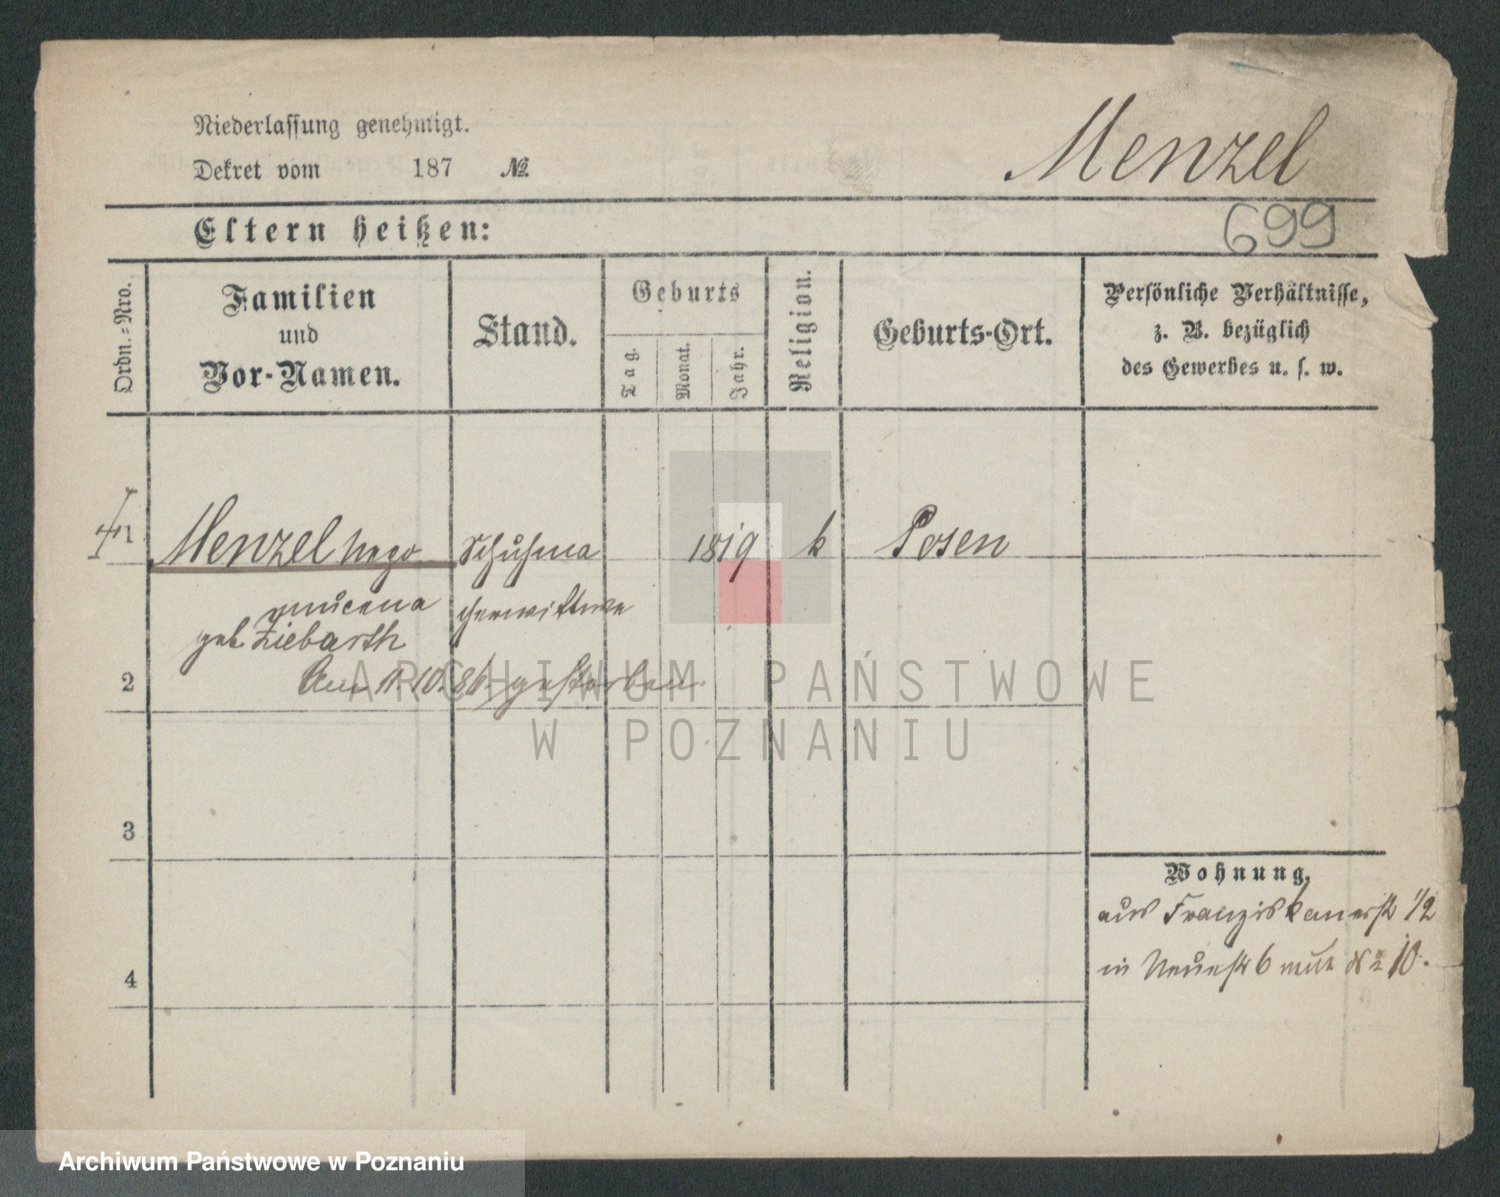 Niederlassung genehmigt.
Dekret vom 187 №
Menzel
Eltern heißen:
699
Ordn.-Nro.
Familien
und
Vor-Namen.
Stand.
Geburts
Tag.
Monat.
Jahr.
Religion.
Geburts-Ort.
Persönliche Verhältnisse,
z. B. bezüglich
des Gewerbes u. s. w.
1 Menzel Nepo Schuhma 1819 k Posen
mucena cherwittwe
geb Ziebarth
2 Am 11.10.81 gestorben.
3
4
Wohnung,
aus Franziskanerst 1/2
in Neuest 6 № 10.
ARCHIWUM PAŃSTWOWE
W POZNANIU
Archiwum Państwowe w Poznaniu